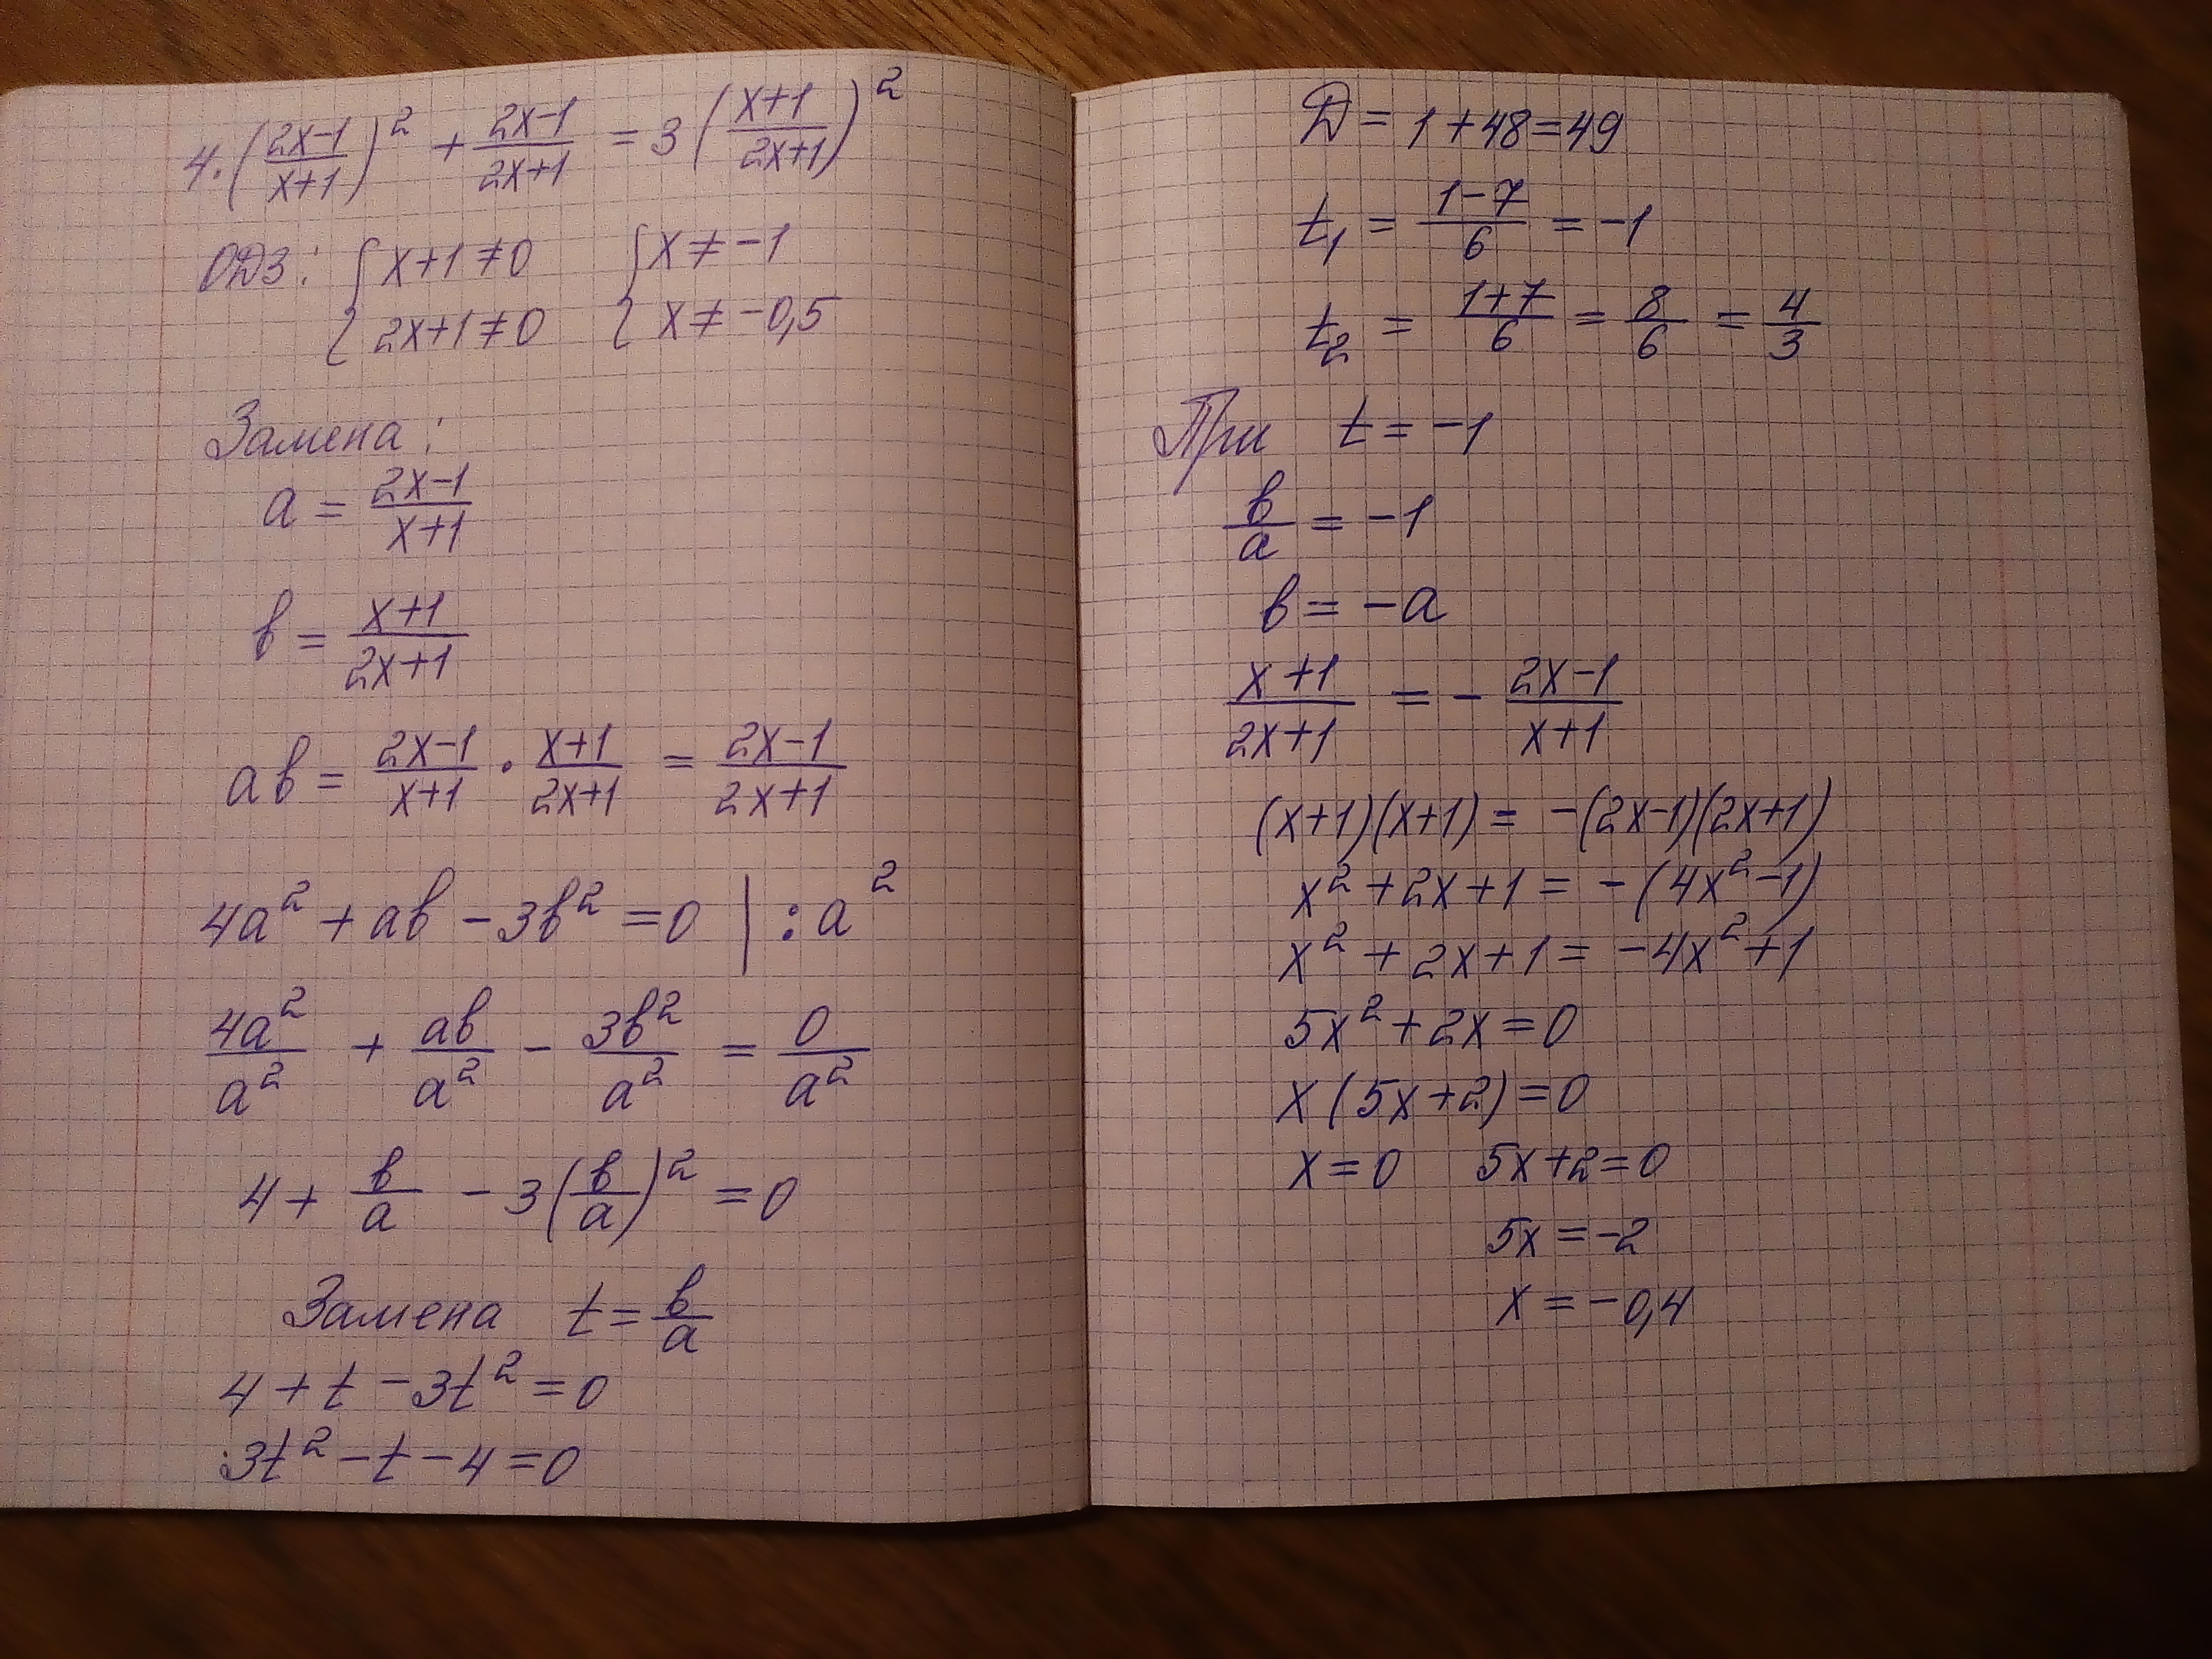 4·((2x-1)/(x+1))² + (2x-1)/(2x+1) = 3((x+1)/(2x+1))²
ОДЗ: { x+1≠0 { x≠-1
{ 2x+1≠0 { x≠-0,5
Замена:
a = (2x-1)/(x+1)
b = (x+1)/(2x+1)
ab = (2x-1)/(x+1) · (x+1)/(2x+1) = (2x-1)/(2x+1)
4a² + ab - 3b² = 0 | : a²
4a²/a² + ab/a² - 3b²/a² = 0/a²
4 + b/a - 3(b/a)² = 0
Замена t = b/a
4 + t - 3t² = 0
3t² - t - 4 = 0
Д = 1 + 48 = 49
t₁ = (1-7)/6 = -1
t₂ = (1+7)/6 = 8/6 = 4/3
При t = -1
b/a = -1
b = -a
(x+1)/(2x+1) = - (2x-1)/(x+1)
(x+1)(x+1) = -(2x-1)(2x+1)
x² + 2x + 1 = -(4x²-1)
x² + 2x + 1 = -4x² + 1
5x² + 2x = 0
x(5x+2) = 0
x = 0 5x+2 = 0
5x = -2
x = -0,4